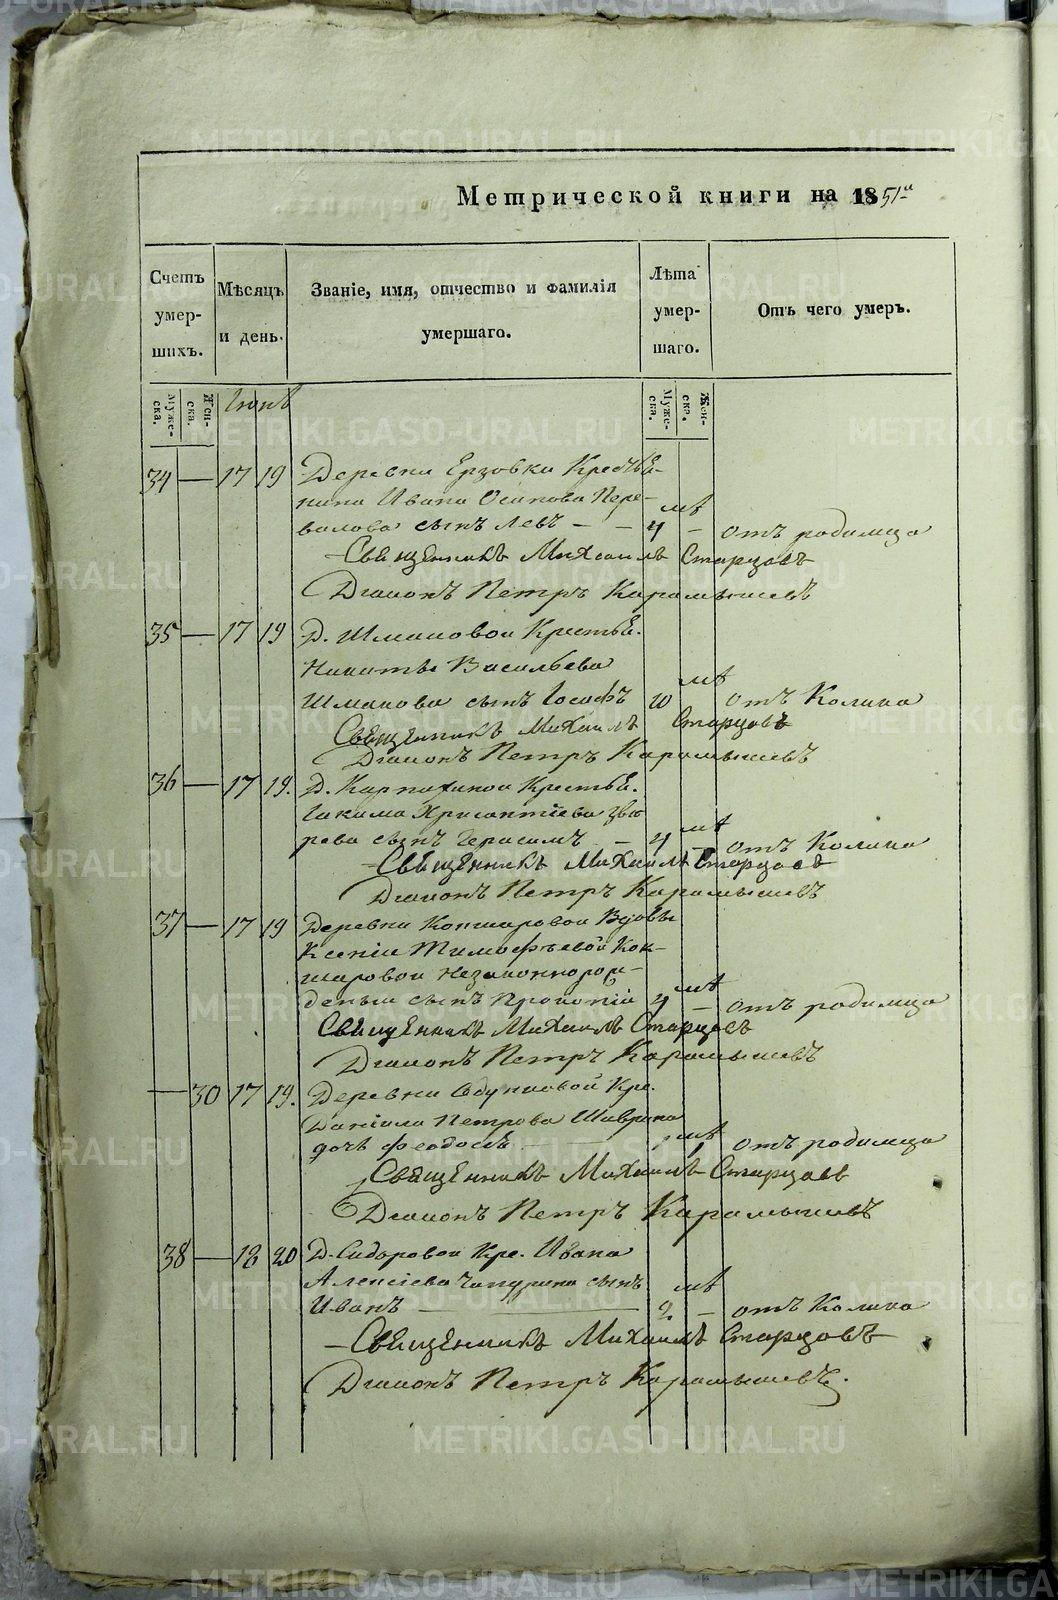 Метрической книги на 1851й
Счетъ умер- шихъ.
Мѣсяцъ и день.
Званіе, имя, отчество и фамилія умершаго.
Лѣта умер- шаго.
Отъ чего умеръ.
Муже- ска.
Жен- ска.
Іюнь
Муже- ска.
Жен- ска.
34 — 17 19 Деревни Ерзовки Кресть-
нина Ивана Осипова Пере-
валова сынъ Левъ — — 4 мѣ — отъ родимца
Священникъ Михаилъ Старцовъ
Діаконъ Петръ Карамышевъ
35 — 17 19 Д. Шмаковой Крестья.
Никиты Васильева
Шмакова сынъ Іосифъ 10 мѣ отъ Колика
Священникъ Михаилъ Старцовъ
Діаконъ Петръ Карамышевъ
36 — 17 19. Д. Крестья.
Іакима Хрисантіева Звѣ
рева сынъ Герасимъ — 4 мѣ — отъ Колика
Священникъ Михаилъ Старцовъ
Діаконъ Петръ Карамышевъ
37 — 17 19 Деревни Кокшаровой Вдовы
Ксеніи Тимофѣевой Кок-
шаровой незаконнорож-
денный сынъ Прокопій 4 мѣ — отъ родимца
Священникъ Михаилъ Старцовъ
Діаконъ Петръ Карамышевъ
— 30 17 19. Деревни Кре.
Даніила Петрова Шаврина
дочь Феодосья мѣ 1 отъ родимца
Священникъ Михаилъ Старцовъ
Діаконъ Петръ Карамышевъ
38 — 18 20 Д. Сидоровой Кре. Ивана
Алексіева Чапурина сынъ
Иванъ — 2 мѣ — отъ Колика
Священникъ Михаилъ Старцовъ
Діаконъ Петръ Карамышевъ.
METRIKI.GASO-URAL.RU